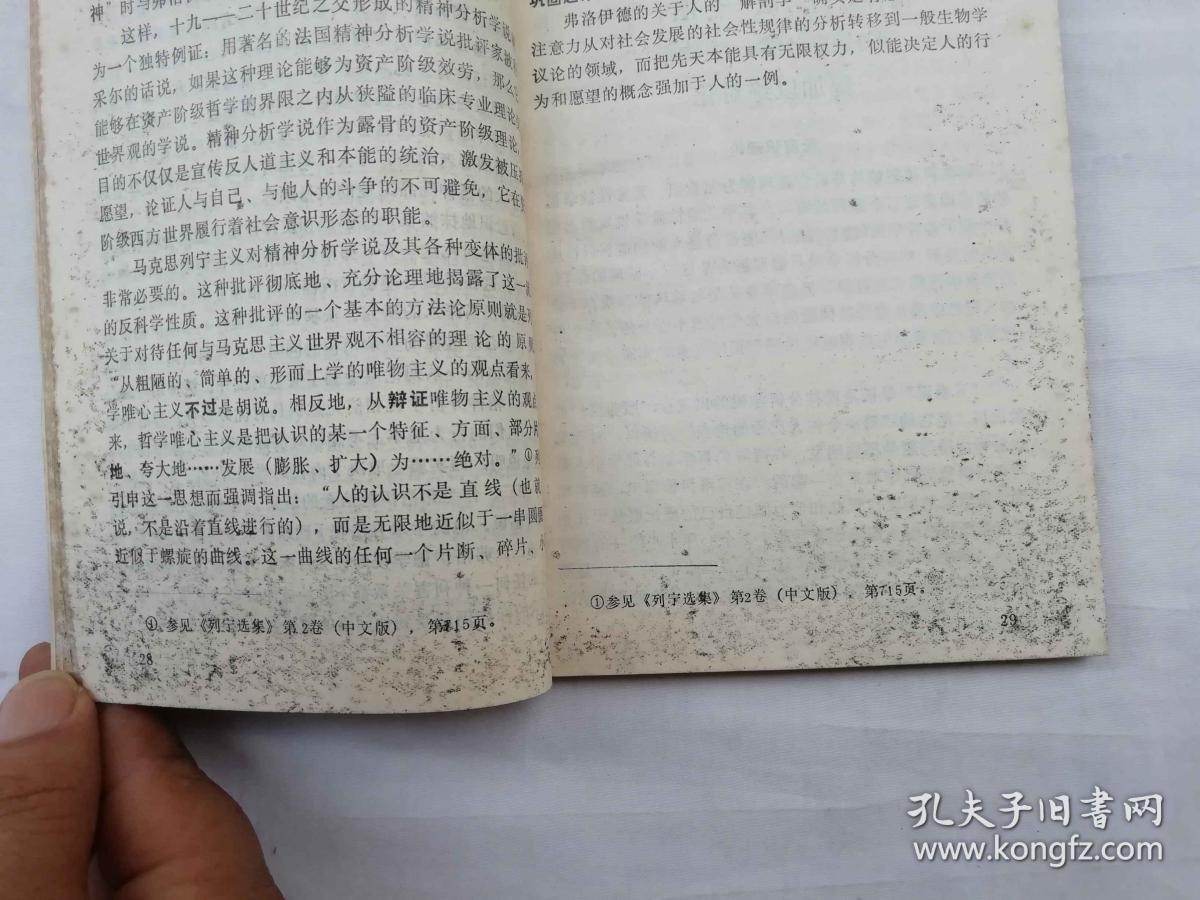 神”时与弗
这样，十九——二十世纪之交形成的精神分析学说
为一个独特例证：用著名的法国精神分析学说批评家
采尔的话说，如果这种理论能够为资产阶级效劳，那么
能够在资产阶级哲学的界限之内从狭隘的临床专业理论
世界观的学说。精神分析学说作为露骨的资产阶级理论，
目的不仅仅是宣传反人道主义和本能的统治，激发被压
愿望，论证人与自己、与他人的斗争的不可避免，它在
阶级西方世界履行着社会意识形态的职能。
马克思列宁主义对精神分析学说及其各种变体的批
非常必要的。这种批评彻底地、充分论理地揭露了这一
的反科学性质。这种批评的一个基本的方法论原则就是
关于对待任何与马克思主义世界观不相容的理论的原
“从粗陋的、简单的、形而上学的唯物主义的观点看来，
学唯心主义不过是胡说。相反地，从辩证唯物主义的观
来，哲学唯心主义是把认识的某一个特征、方面、部分
地、夸大地……发展（膨胀、扩大）为……绝对。”①
引申这一思想而强调指出：“人的认识不是直线（也
说，不是沿着直线进行的），而是无限地近似于一串圆
近似于螺旋的曲线。这一曲线的任何一个片断、碎片、
① 参见《列宁选集》第2卷（中文版），第715页。
28
弗洛伊德的关于人的“解剖学”
注意力从对社会发展的社会性规律的分析转移到一般生物学
议论的领域，而把先天本能具有无限权力，似能决定人的行
为和愿望的概念强加于人的一例。
①参见《列宁选集》第2卷（中文版），第715页。
29
孔夫子旧书网
www.kongfz.com